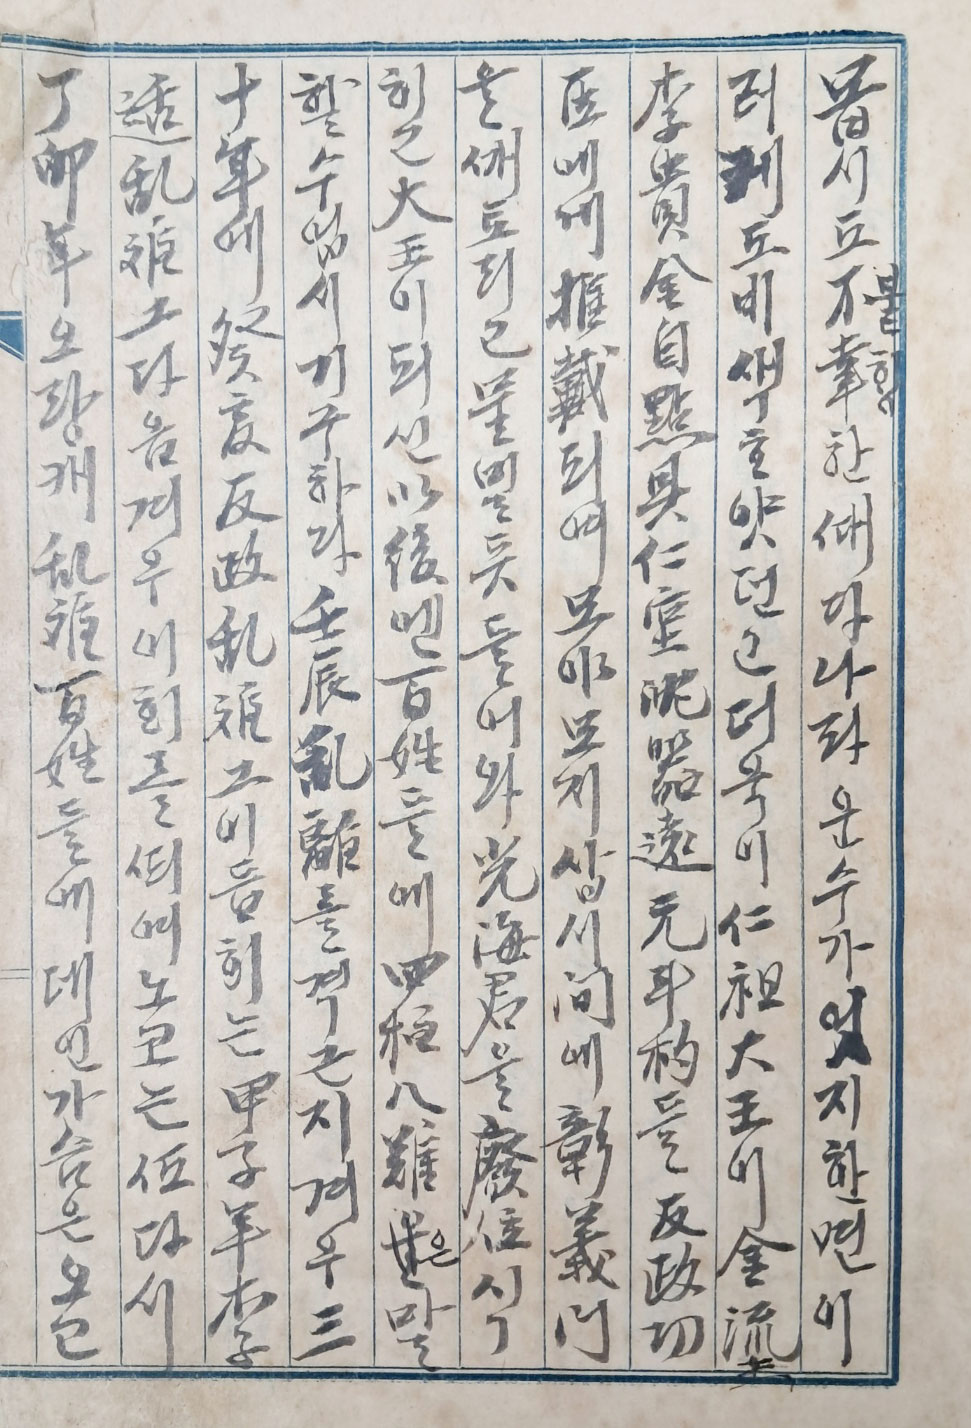 몹시도不幸한때라나라운수가엇지한면이
불행
러케도비색호얏던고더욱이仁祖大王이金流
李貴金自點具仁垕沈器遠元斗杓등反政功
臣에게推戴되여모야모지삼시間에彰義門
을깨트리고물밀듯들어와光海君을廢位식
히고大王이되신以後엔百姓들에四柱八難은말
할수업시기구하다壬辰亂離를격근지겨우三
十年에癸亥反政乱離그이듬히는甲子年李
适乱離그다음겨우이히를쉬여노코는또다시
丁卯年오랑캐乱離百姓들에대인가슴은